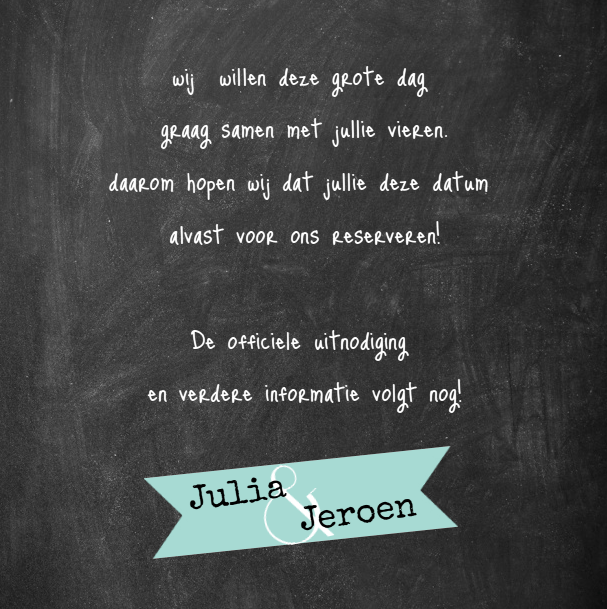 wij willen deze grote dag
graag samen met jullie vieren.
daarom hopen wij dat jullie deze datum
alvast voor ons reserveren!
De officiele uitnodiging
en verdere informatie volgt nog!
Julia
&
Jeroen